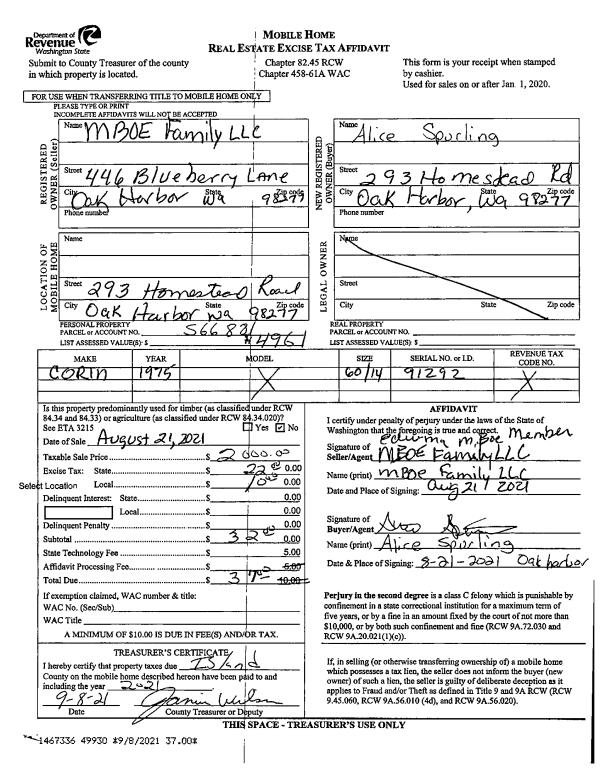 Department of
Revenue
Washington State
MOBILE HOME
REAL ESTATE EXCISE TAX AFFIDAVIT
Submit to County Treasurer of the county
in which property is located.
Chapter 82.45 RCW
Chapter 458-61A WAC
This form is your receipt when stamped
by cashier.
Used for sales on or after Jan. 1, 2020.
FOR USE WHEN TRANSFERRING TITLE TO MOBILE HOME ONLY
PLEASE TYPE OR PRINT
INCOMPLETE AFFIDAVITS WILL NOT BE ACCEPTED
REGISTERED OWNER (Seller)
Name MBOE Family LLC
Street 446 Blueberry Lane
City Oak Harbor State Wa Zip code 98277
Phone number
NEW REGISTERED OWNER (Buyer)
Name Alice Spurling
Street 293 Homestead Rd
City Oak Harbor, State Wa Zip code 98277
Phone number
LOCATION OF MOBILE HOME
Name
Street 293 Homestead Road
City Oak Harbor State wa Zip code 98277
LEGAL OWNER
Name
Street
City State Zip code
PERSONAL PROPERTY
PARCEL or ACCOUNT NO. 566831
LIST ASSESSED VALUE(S): $ 4961
REAL PROPERTY
PARCEL or ACCOUNT NO.
LIST ASSESSED VALUE(S): $
MAKE YEAR MODEL SIZE SERIAL NO. or I.D. REVENUE TAX CODE NO.
CORIN 1975 X 60/14 91292 X
Is this property predominantly used for timber (as classified under RCW
84.34 and 84.33) or agriculture (as classified under RCW 84.34.020)?
See ETA 3215 Yes ☑ No
Date of Sale August 21, 2021
Taxable Sale Price $ 2000.00
Excise Tax: State $ 22.00 0.00
Select Location Local $ 10.00 0.00
Delinquent Interest: State $ 0.00
Local $ 0.00
Delinquent Penalty $ 0.00
Subtotal $ 32.00 0.00
State Technology Fee $ 5.00
Affidavit Processing Fee $ 5.00
Total Due $ 37.00 10.00
If exemption claimed, WAC number & title:
WAC No. (Sec/Sub)
WAC Title
A MINIMUM OF $10.00 IS DUE IN FEE(S) AND/OR TAX.
TREASURER'S CERTIFICATE
I hereby certify that property taxes due Island
County on the mobile home described hereon have been paid to and
including the year 2021
9-8-21
Date County Treasurer or Deputy
AFFIDAVIT
I certify under penalty of perjury under the laws of the State of
Washington that the foregoing is true and correct.
Member
Signature of
Seller/Agent MBOE Family LLC
Name (print) MBOE Family LLC
Date and Place of Signing: Aug 21/2021
Signature of
Buyer/Agent
Name (print) Alice Spurling
Date & Place of Signing: 8-21-2021 Oak harbor
Perjury in the second degree is a class C felony which is punishable by
confinement in a state correctional institution for a maximum term of
five years, or by a fine in an amount fixed by the court of not more than
$10,000, or by both such confinement and fine (RCW 9A.72.030 and
RCW 9A.20.021(1)(c)).
If, in selling (or otherwise transferring ownership of) a mobile home
which possesses a tax lien, the seller does not inform the buyer (new
owner) of such a lien, the seller is guilty of deliberate deception as it
applies to Fraud and/or Theft as defined in Title 9 and 9A RCW (RCW
9.45.060, RCW 9A.56.010 (4d), and RCW 9A.56.020).
THIS SPACE - TREASURER'S USE ONLY
1467336 49930 *9/8/2021 37.00*